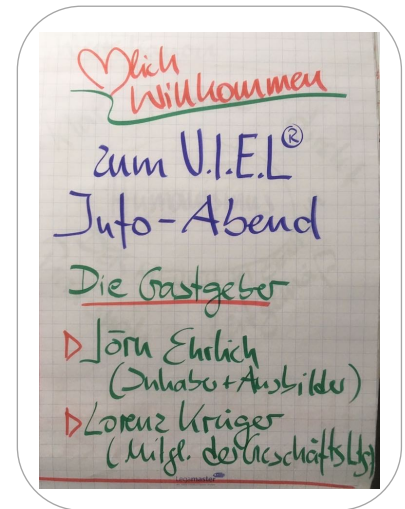 ♡lich
Willkommen
zum V.I.E.L®
Info-Abend
Die Gastgeber
Jörn Ehrlich
(Inhaber + Ausbilder)
Lorenz Krüger
(Mitgl. der Geschäftsltg)
Legamaster